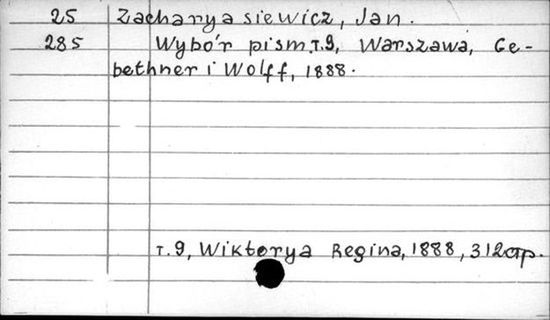 25 Zacharyasiewicz, Jan.
285 Wybór pism. T.9, Warszawa, Ge-
bethner i Wolff, 1888.
T.9, Wiktorya Regina, 1888, 312 стр.